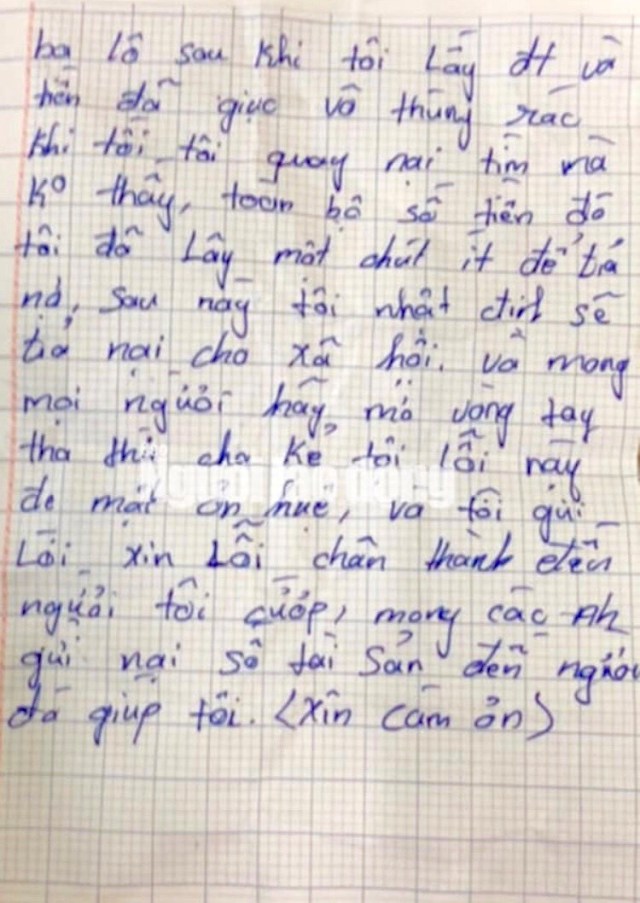 ba lô sau khi tôi Lấy đt và
tiền đã giục vô thùng rác
khi tôi tôi quay nai tìm mà
Ko thấy, toàn bộ số tiền đó
tôi đã Lấy một chút ít để trả
nợ, sau này tôi nhất định sẽ
trả nại cho xã hội. và mong
mọi người hãy mở vòng tay
tha thứ cho kẻ tội lỗi này
Người Lao động
để mặt ơn huệ, và tôi gửi
Lời xin Lỗi chân thành đến
người tôi cướp, mong các Ah
gửi nại số tài sản đến người
đã giúp tôi. <Xin Cảm ơn>